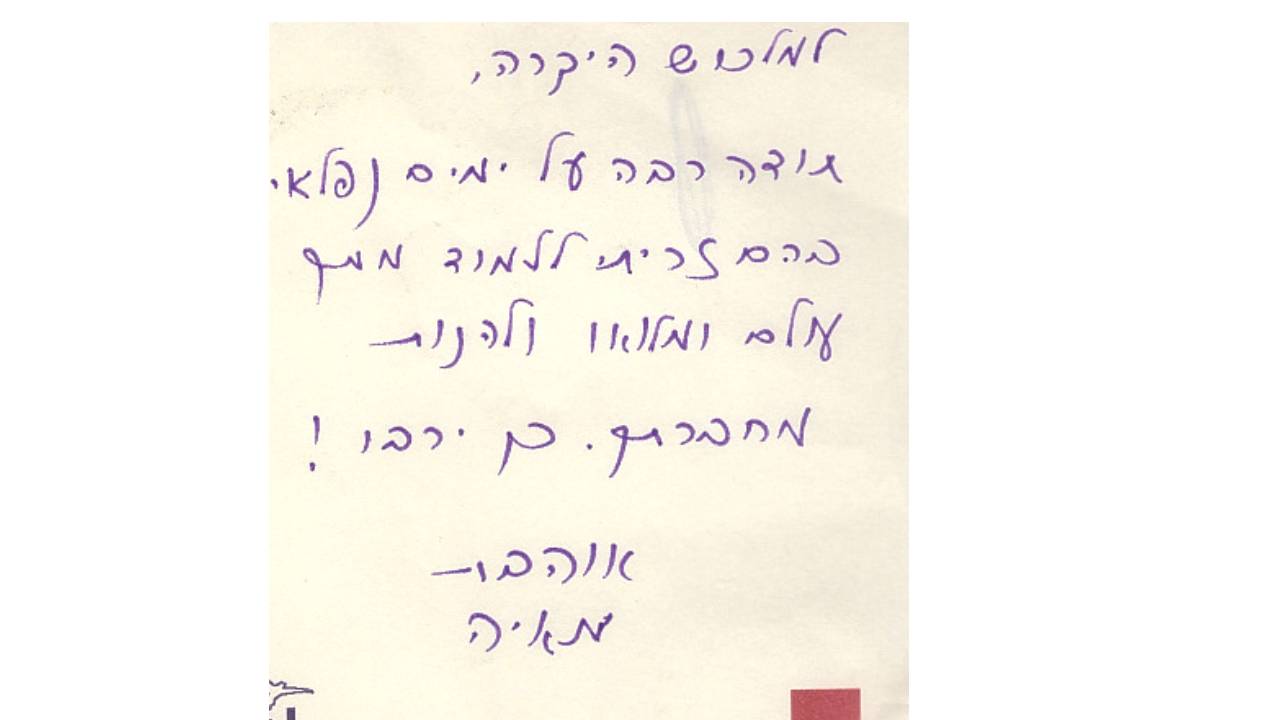 למלכוש היקרה,
תודה רבה על ימים נפלאי
בהם זכיתי ללמוד ממך
עולם ומלואו ולהנות
מחברתך. כן ירבו!
אוהבת
מאיה